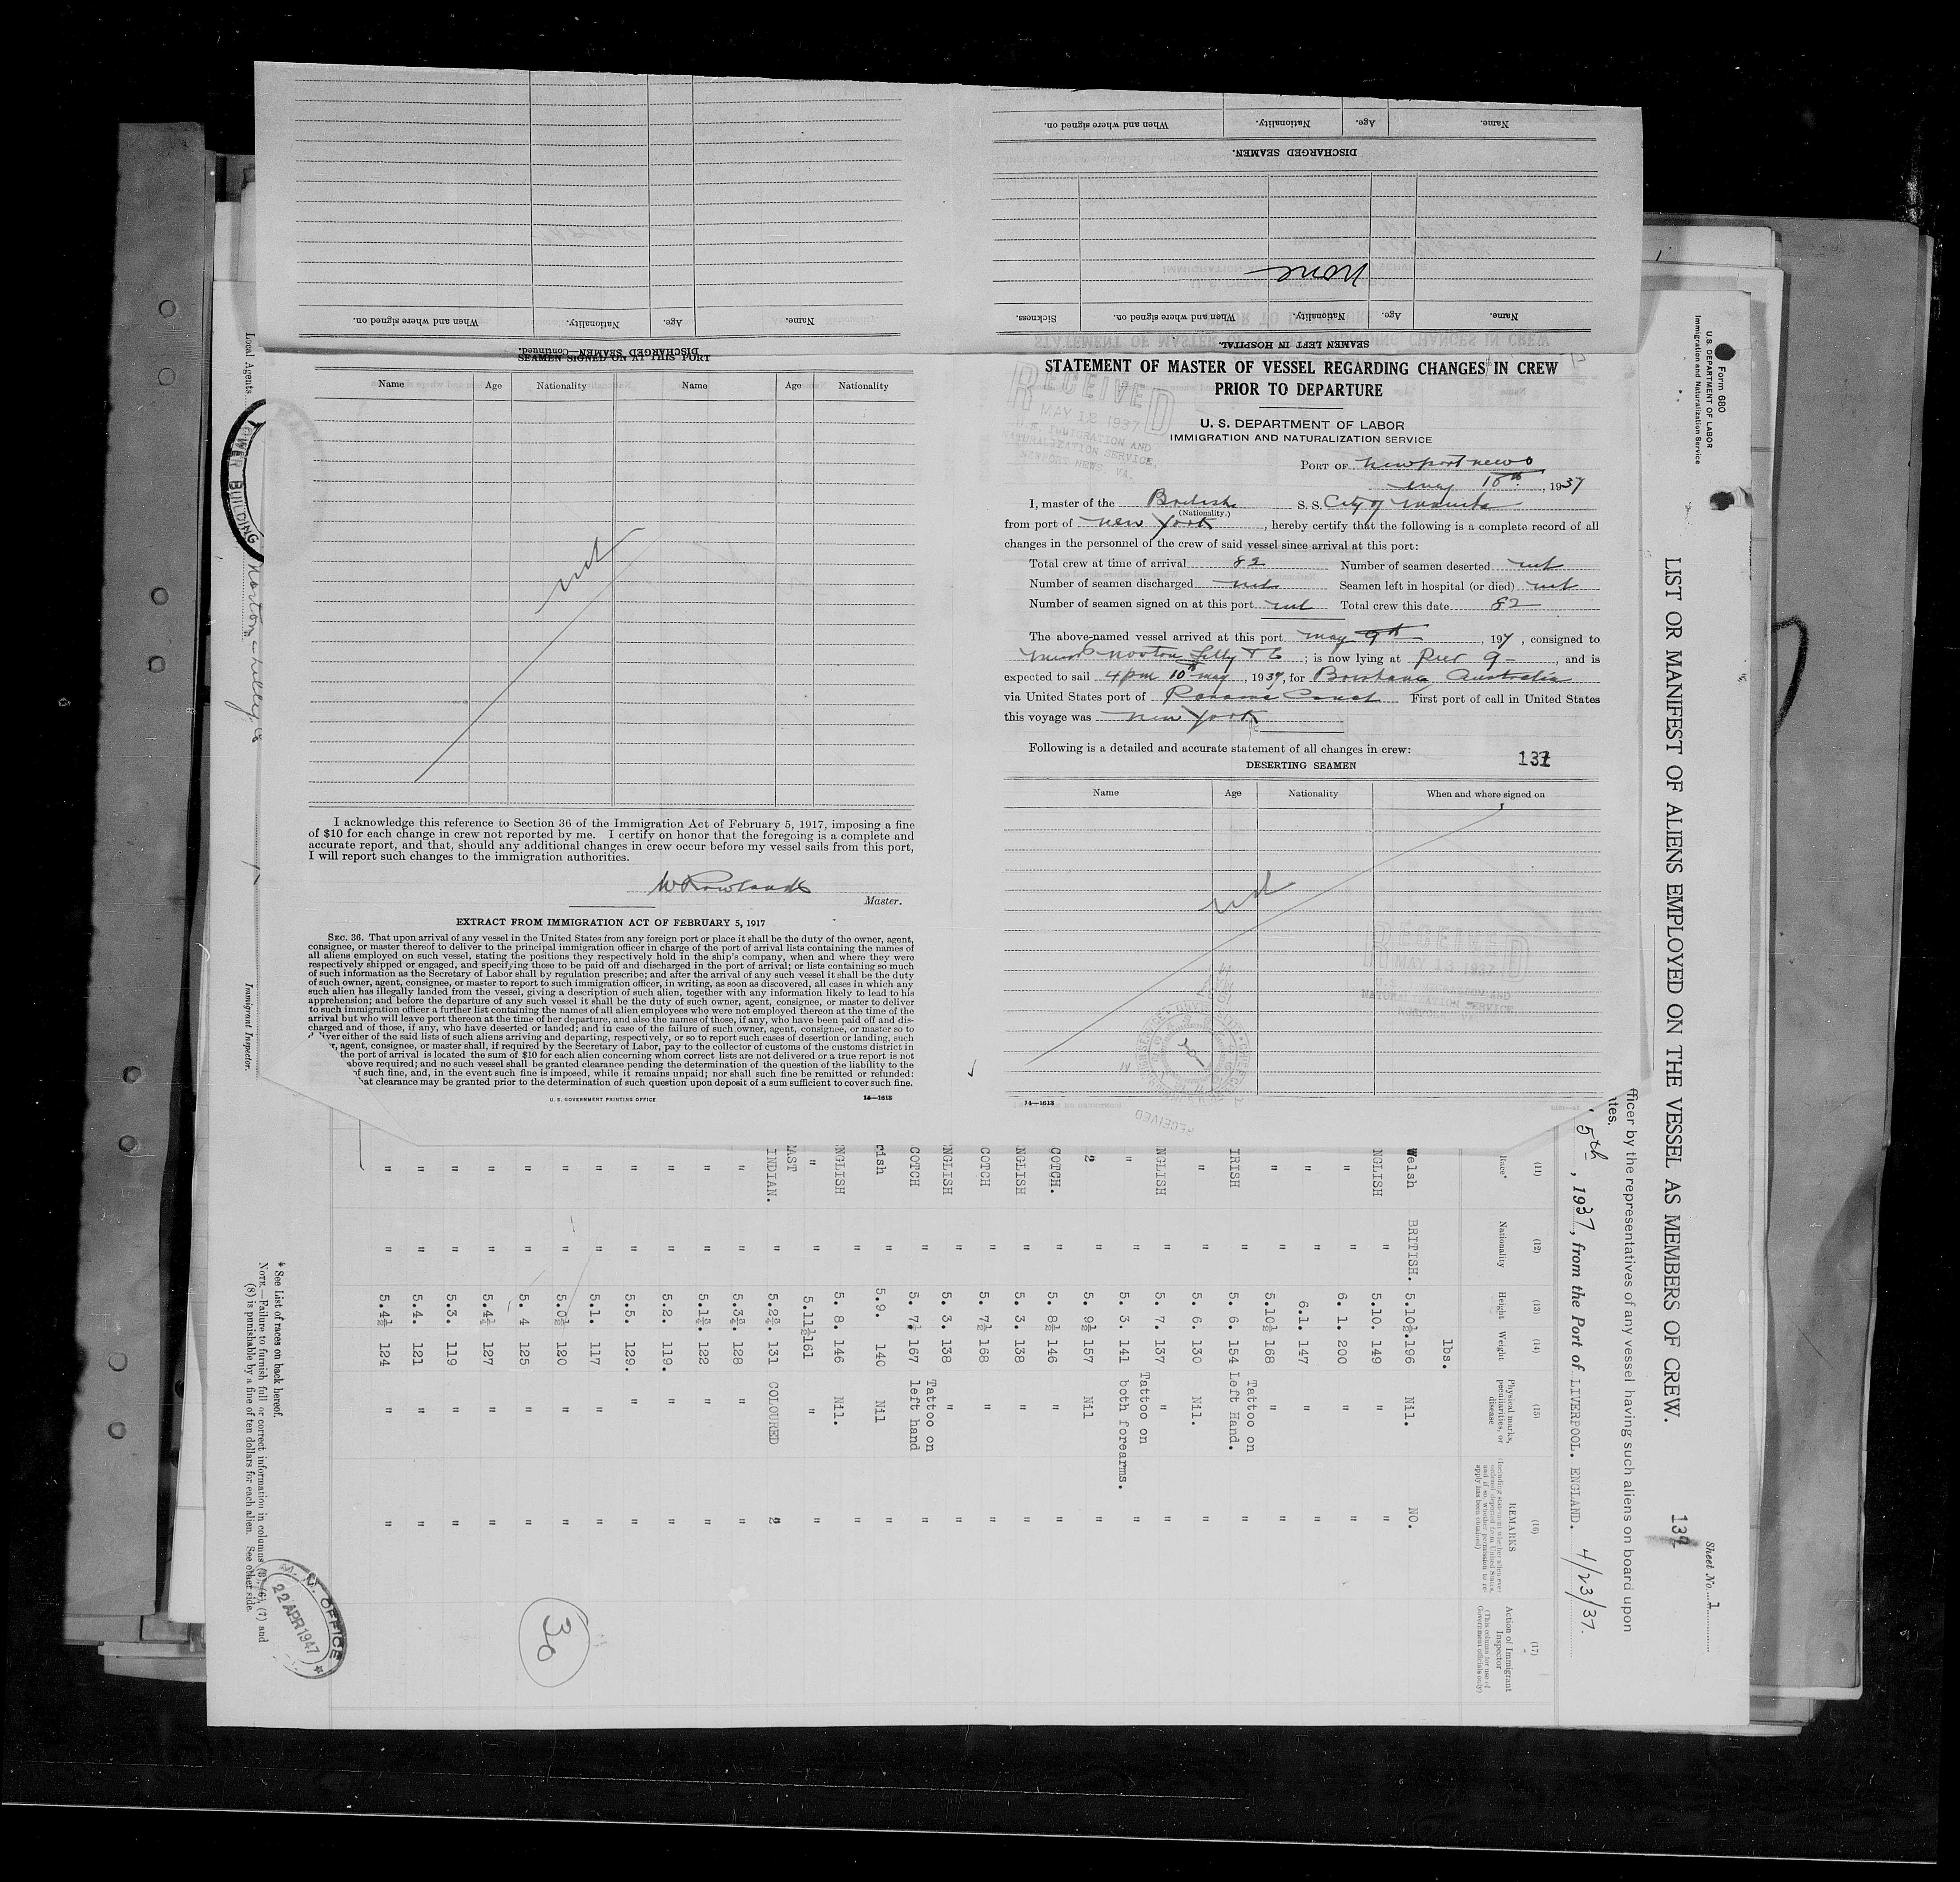 When and where signed on.
Nationality.
Age.
Name.
DISCHARGED SEAMEN.
None
When and where signed on.
Nationality.
Age.
Name.
Sickness.
When and where signed on.
Nationality.
Age.
Name.
DISCHARGED SEAMEN—Continued.
SEAMEN LEFT IN HOSPITAL.
SEAMEN SIGNED ON AT THIS PORT
Name Age Nationality Name Age Nationality
I acknowledge this reference to Section 36 of the Immigration Act of February 5, 1917, imposing a fine
of $10 for each change in crew not reported by me. I certify on honor that the foregoing is a complete and
accurate report, and that, should any additional changes in crew occur before my vessel sails from this port,
I will report such changes to the immigration authorities.
W Rowlands
Master.
EXTRACT FROM IMMIGRATION ACT OF FEBRUARY 5, 1917
SEC. 36. That upon arrival of any vessel in the United States from any foreign port or place it shall be the duty of the owner, agent,
consignee, or master thereof to deliver to the principal immigration officer in charge of the port of arrival lists containing the names of
all aliens employed on such vessel, stating the positions they respectively hold in the ship's company, when and where they were
respectively shipped or engaged, and specifying those to be paid off and discharged in the port of arrival; or lists containing so much
of such information as the Secretary of Labor shall by regulation prescribe; and after the arrival of any such vessel it shall be the duty
of such owner, agent, consignee, or master to report to such immigration officer, in writing, as soon as discovered, all cases in which any
such alien has illegally landed from the vessel, giving a description of such alien, together with any information likely to lead to his
apprehension; and before the departure of any such vessel it shall be the duty of such owner, agent, consignee, or master to deliver
to such immigration officer a further list containing the names of all alien employees who were not employed thereon at the time of the
arrival but who will leave port thereon at the time of her departure, and also the names of those, if any, who have been paid off and dis-
charged and of those, if any, who have deserted or landed; and in case of the failure of such owner, agent, consignee, or master so to
liver either of the said lists of such aliens arriving and departing, respectively, or so to report such cases of desertion or landing, such
r, agent, consignee, or master shall, if required by the Secretary of Labor, pay to the collector of customs of the customs district in
the port of arrival is located the sum of $10 for each alien concerning whom correct lists are not delivered or a true report is not
above required; and no such vessel shall be granted clearance pending the determination of the question of the liability to the
of such fine, and, in the event such fine is imposed, while it remains unpaid; nor shall such fine be remitted or refunded:
hat clearance may be granted prior to the determination of such question upon deposit of a sum sufficient to cover such fine.
U. S. GOVERNMENT PRINTING OFFICE 14—1613
STATEMENT OF MASTER OF VESSEL REGARDING CHANGES IN CREW
PRIOR TO DEPARTURE
RECEIVED
MAY 12 1937
U. S. IMMIGRATION AND
NATURALIZATION SERVICE,
NEWPORT NEWS, VA.
U. S. DEPARTMENT OF LABOR
IMMIGRATION AND NATURALIZATION SERVICE
PORT OF Newport news
May 10th, 1937
I, master of the British S. S. City of Manila
(Nationality.)
from port of new York, hereby certify that the following is a complete record of all
changes in the personnel of the crew of said vessel since arrival at this port:
Total crew at time of arrival 82 Number of seamen deserted nil
Number of seamen discharged nil Seamen left in hospital (or died) nil
Number of seamen signed on at this port nil Total crew this date 82
The above-named vessel arrived at this port may 9th, 197, consigned to
Norton Lilly & C; is now lying at Pier 9, and is
expected to sail 4pm 10th may, 1937, for Brisbane Australia
via United States port of Panama Canal First port of call in United States
this voyage was new York
Following is a detailed and accurate statement of all changes in crew:
131
DESERTING SEAMEN
Name Age Nationality When and where signed on
nil
RECEIVED
MAY 13 1937
U. S. IMMIGRATION AND
NATURALIZATION SERVICE
14—1613
RECEIVED
Form 680
U. S. DEPARTMENT OF LABOR
Immigration and Naturalization Service
Sheet No. 1
LIST OR MANIFEST OF ALIENS EMPLOYED ON THE VESSEL AS MEMBERS OF CREW.
132
fficer by the representatives of any vessel having such aliens on board upon
tes.
5th, 1937, from the Port of LIVERPOOL. ENGLAND. 4/23/37.
(11) (12) (13) (14) (15) (16) (17)
Race* Nationality Height Weight Physical marks, peculiarities, or disease REMARKS (Including statement whether alien ever ordered deported from United States, and if so, whether permission to re-apply has been obtained) Action of Immigrant Inspector (This column for use of Government officials only)
lbs.
Welsh BRITISH. 5.10½. 196 Nil. NO.
NGLISH " 5.10. 149 " "
" " 6. 1. 200 " "
" " 6.1. 147 " "
" " 5.10½ 168 " "
IRISH " 5. 6. 154 Tattoo on Left Hand. "
" " 5. 6. 130 Nil. "
NGLISH " 5. 7. 137 " "
" " 5. 3. 141 Tattoo on both forearms. "
" " 5. 9½ 157 Nil "
COTCH. " 5. 8½ 146 " "
NGLISH " 5. 3. 138 " "
COTCH " 5. 7½ 168 " "
NGLISH " 5. 3. 138 " "
COTCH " 5. 7½ 167 Tattoo on left hand "
rish " 5.9. 140 Nil "
NGLISH " 5. 8. 146 Nil. "
" " 5.11½ 161 " "
AST INDIAN. " 5.2¾. 131 COLOURED "
" " 5.3¾. 128 " "
" " 5.1¾. 122 " "
" " 5.2. 119. " "
" " 5.5. 129. " "
" " 5.1. 117 " "
" " 5.0½ 120 " "
" " 5. 4 125 " "
" " 5.4½ 127 " "
" " 5.3. 119 " "
" " 5.4. 121 " "
" " 5.4½ 124 " "
30
* See List of races on back hereof.
NOTE.—Failure to furnish full or correct information in columns (3), (6), (7) and
(8) is punishable by a fine of ten dollars for each alien. See other side.
M. M. OFFICE
22 APR 1947
Local Agents
BUILDING
Norton Lilly
Immigrant Inspector.